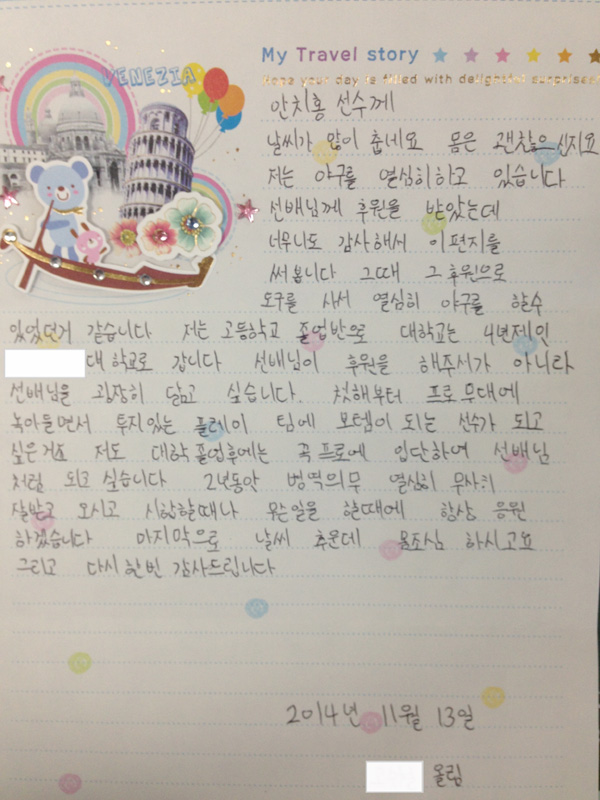 VENEZIA
My Travel story
Hope your day is filled with delightful surprises!
안치홍 선수께
날씨가 많이 춥네요 몸은 괜찮으신지요
저는 야구를 열심히하고 있습니다
선배님께 후원을 받았는데
너무나도 감사해서 이편지를
써봅니다 그때 그후원으로
도구를 사서 열심히 야구를 할수
있었던거 같습니다 저는 고등학교 졸업반으로 대학교는 4년제인
대학교로 갑니다 선배님이 후원을 해주셔가 아니라
선배님을 굉장히 닮고 싶습니다. 첫해부터 프로무대에
녹아들면서 투지있는 플레이 팀에 보템이 되는 선수가 되고
싶은거요 저도 대학졸업후에는 꼭프로에 입단하여 선배님
처럼 되고싶습니다 2년동안 병역의무 열심히 무사히
잘받고 오시고 시합할때나 무슨일을 할때에 항상 응원
하겠습니다 마지막으로 날씨 추운데 몸조심 하시고요
그리고 다시한번 감사드립니다
2014년 11월 13일
올림